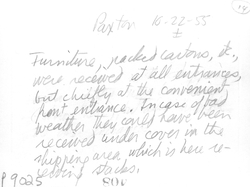 Paxton 10-22-55
Furniture, packed cartons, etc.,
were received at all entrances,
but chiefly at the convenient
front entrance. In case of bad
weather they could have been
received under cover in the
shipping area, which is here re-
ceiving stacks.
P9085